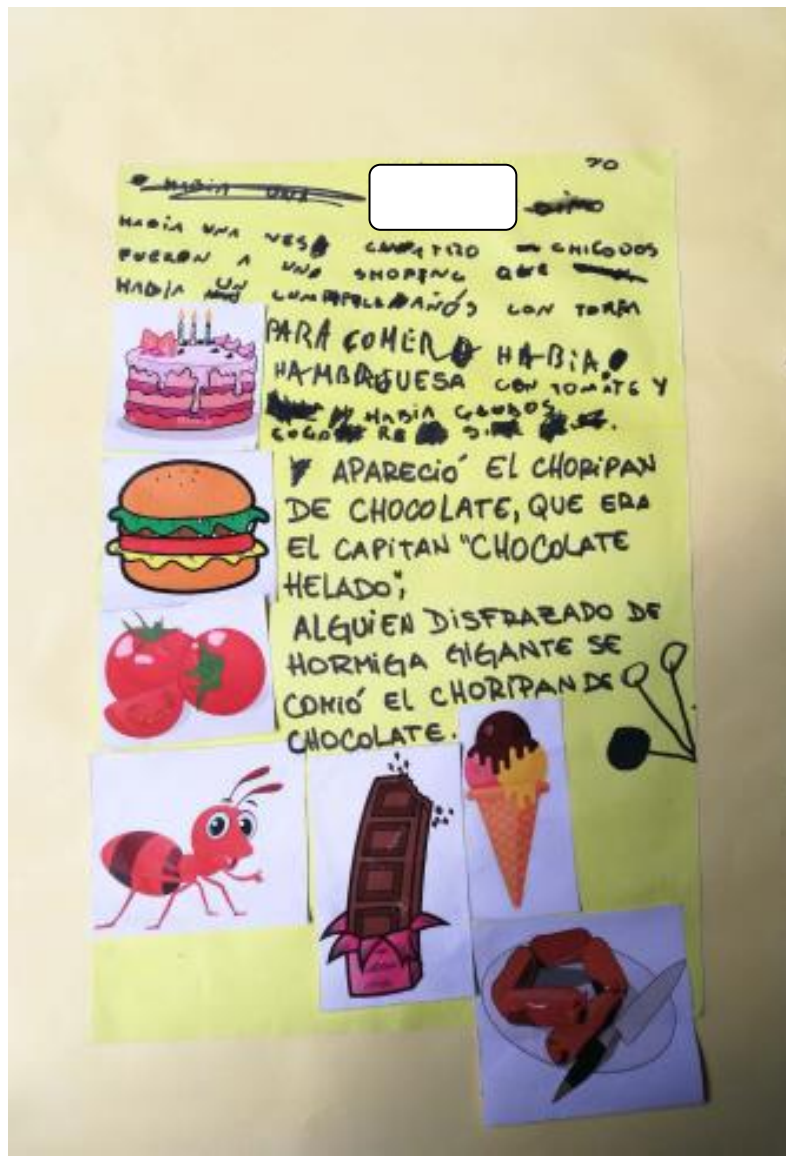 HABÍA UNA
HABÍA UNA VES
FUERON A UNA SHOPING QUE
HABÍA UN CUMPLEAÑOS CON TORTA
PARA COMER HABÍA
HAMBRGUESA CON TOMATE Y
HABÍA GLOBOS
Y APARECIÓ EL CHORIPAN
DE CHOCOLATE, QUE ERA
EL CAPITAN "CHOCOLATE
HELADO";
ALGUIEN DISFRAZADO DE
HORMIGA GIGANTE SE
COMIÓ EL CHORIPAN DE
CHOCOLATE.